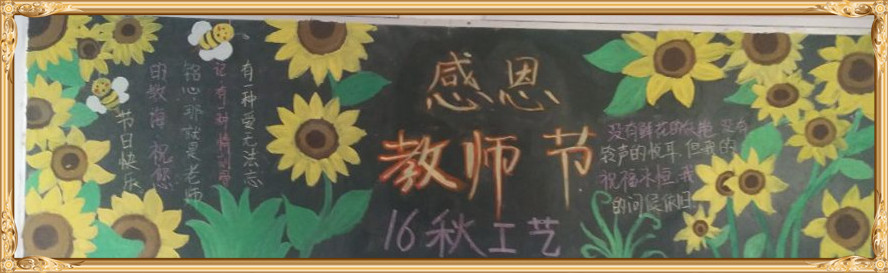 感恩
教师节
16秋工艺
有一种爱无法忘
记 有一种情刻骨
铭心 那就是老师
的教诲 祝您
节日快乐
没有鲜花的 没有
铃声的悦耳 但我的
祝福永恒 我
的问候依旧